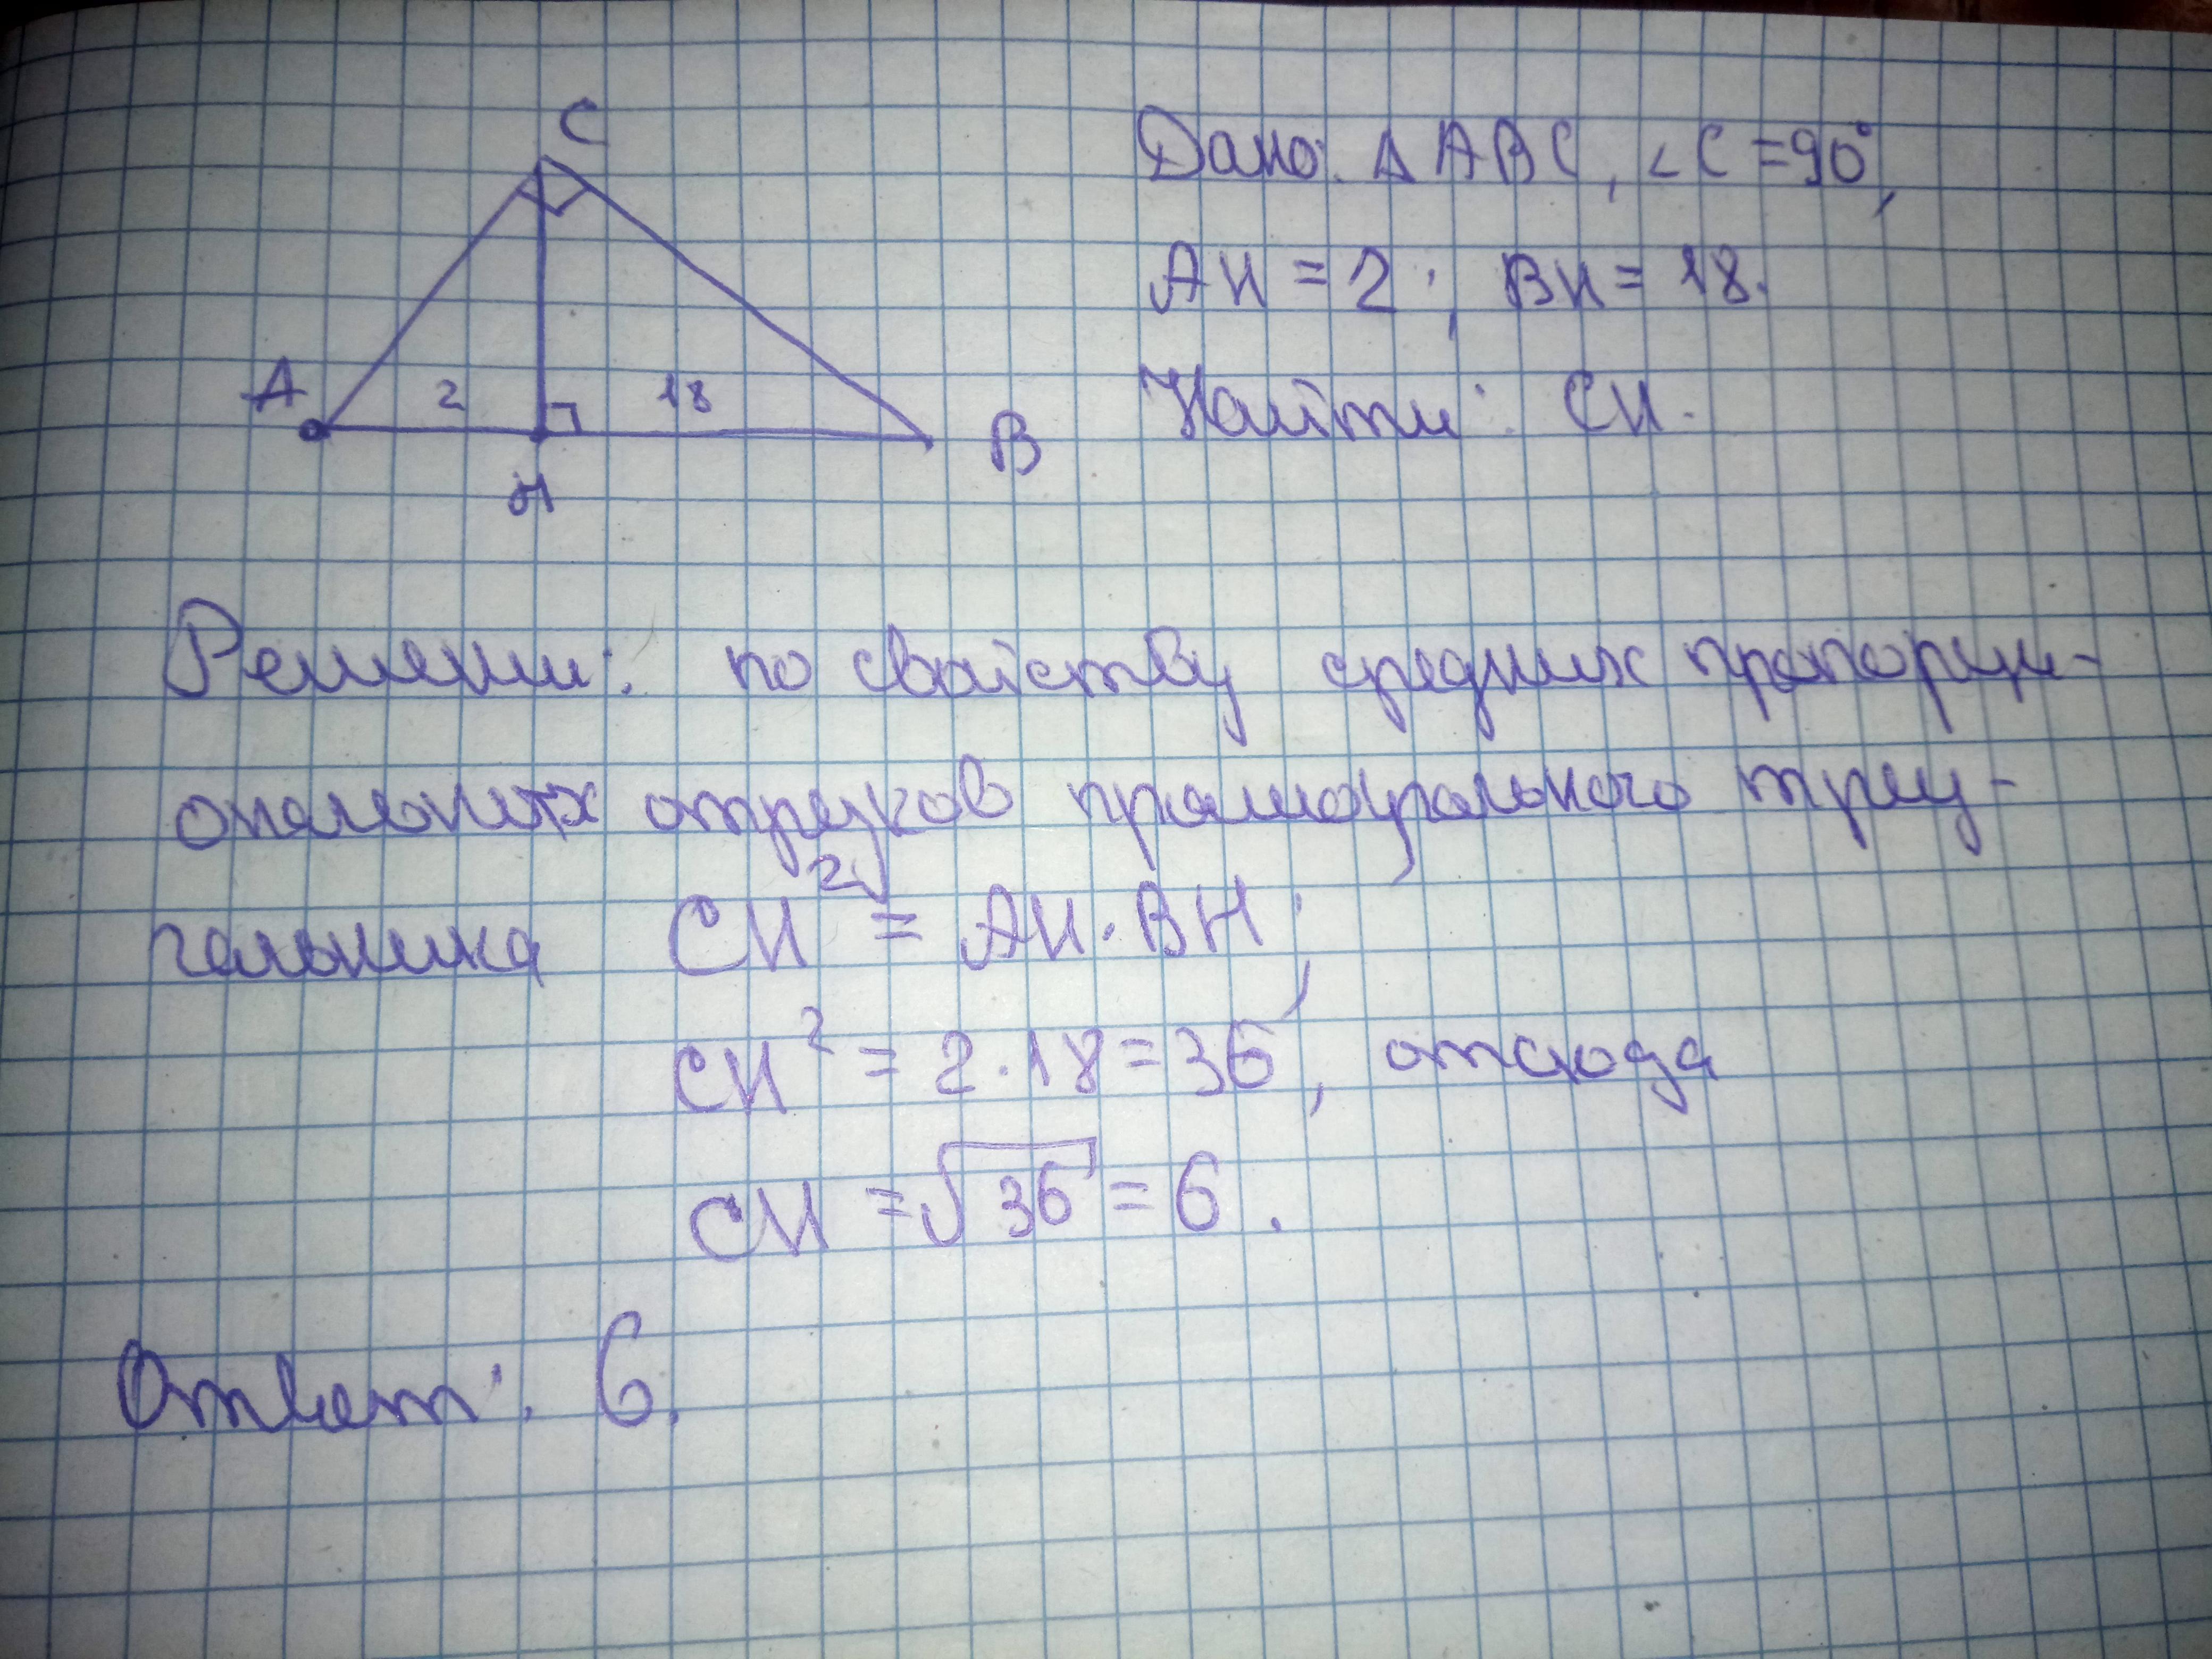 C
Дано: Δ ABC, ∠C = 90°,
AH = 2; BH = 18.
A
2
18
Найти: CH.
B
H
Решение: по свойству средних пропорци-
ональных отрезков прямоугольного треу-
гольника CH² = AH · BH;
CH² = 2 · 18 = 36, отсюда
CH = √36 = 6.
Ответ: 6.